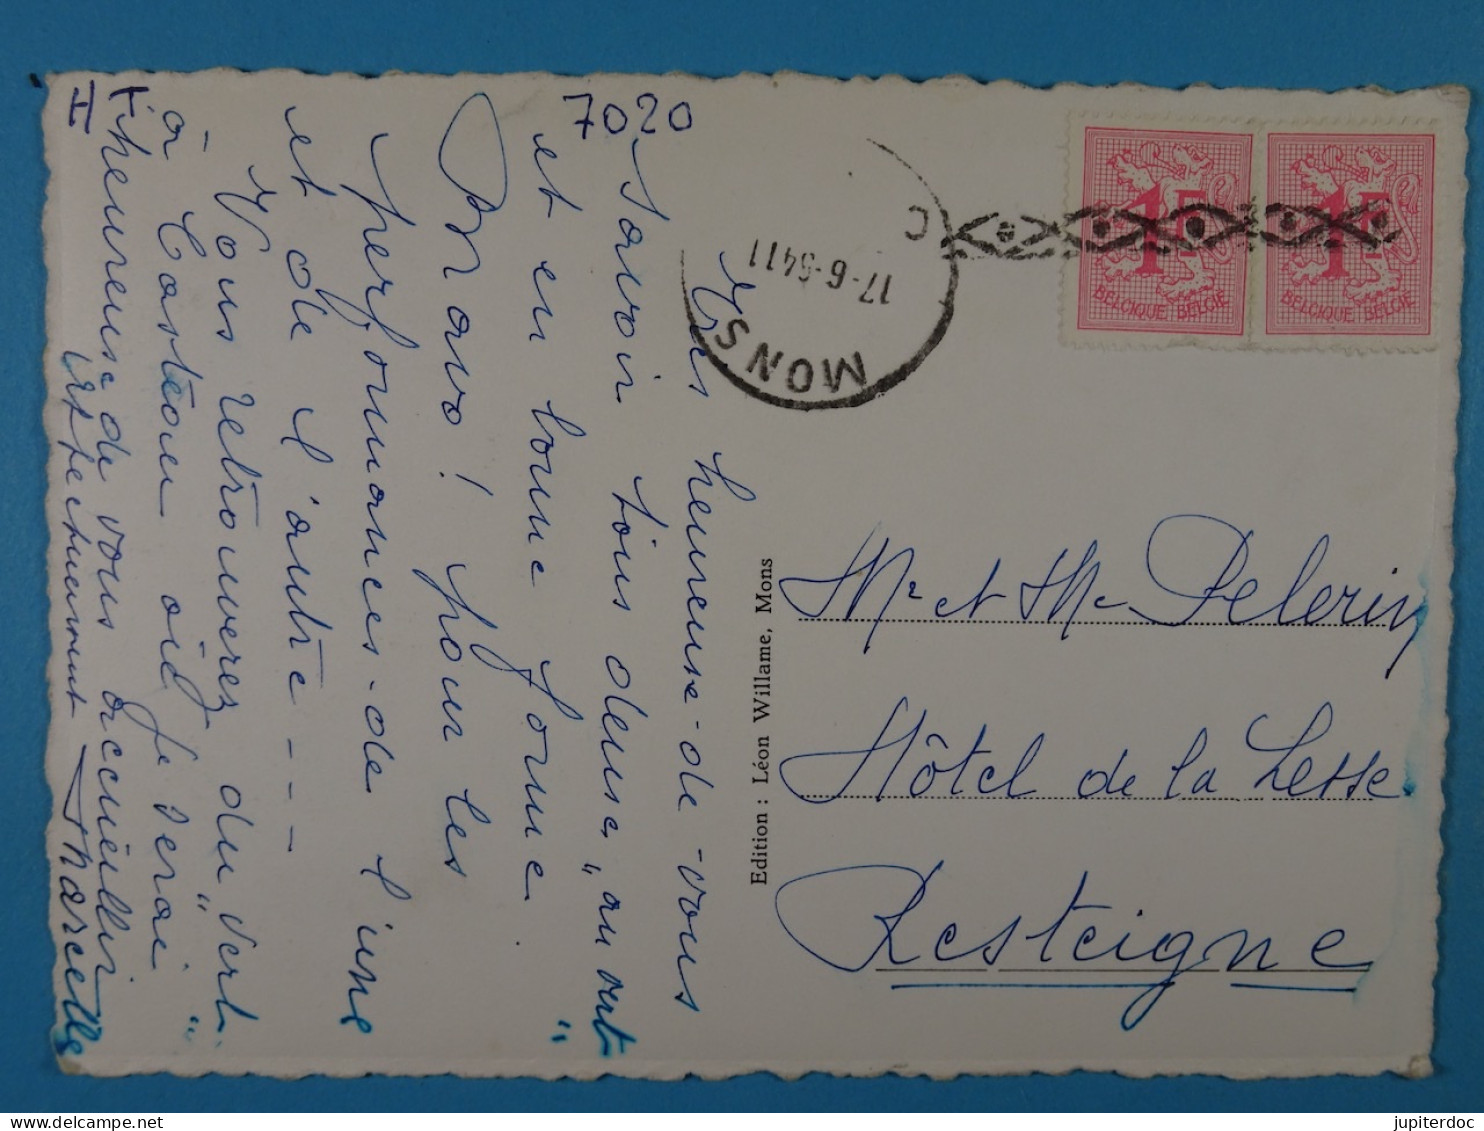 7020
Très heureuse-de-vous
savoir tous deux, "au vert"
et en bonne forme.
Bravo! pour les
performances-de l'une
et de l'autre - - -
Vous retrouverez du "vert"
à Casteau où je serai
heureuse de vous accueillir
Affectueusement Marcelle
MONS
17-6-54 11
C
BELGIQUE BELGIE
BELGIQUE BELGIE
Edition : Léon Willame, Mons
Mr et Me Pelerin
Hôtel de la Lesse
Resteigne
jupiterdoc
delcampe.net